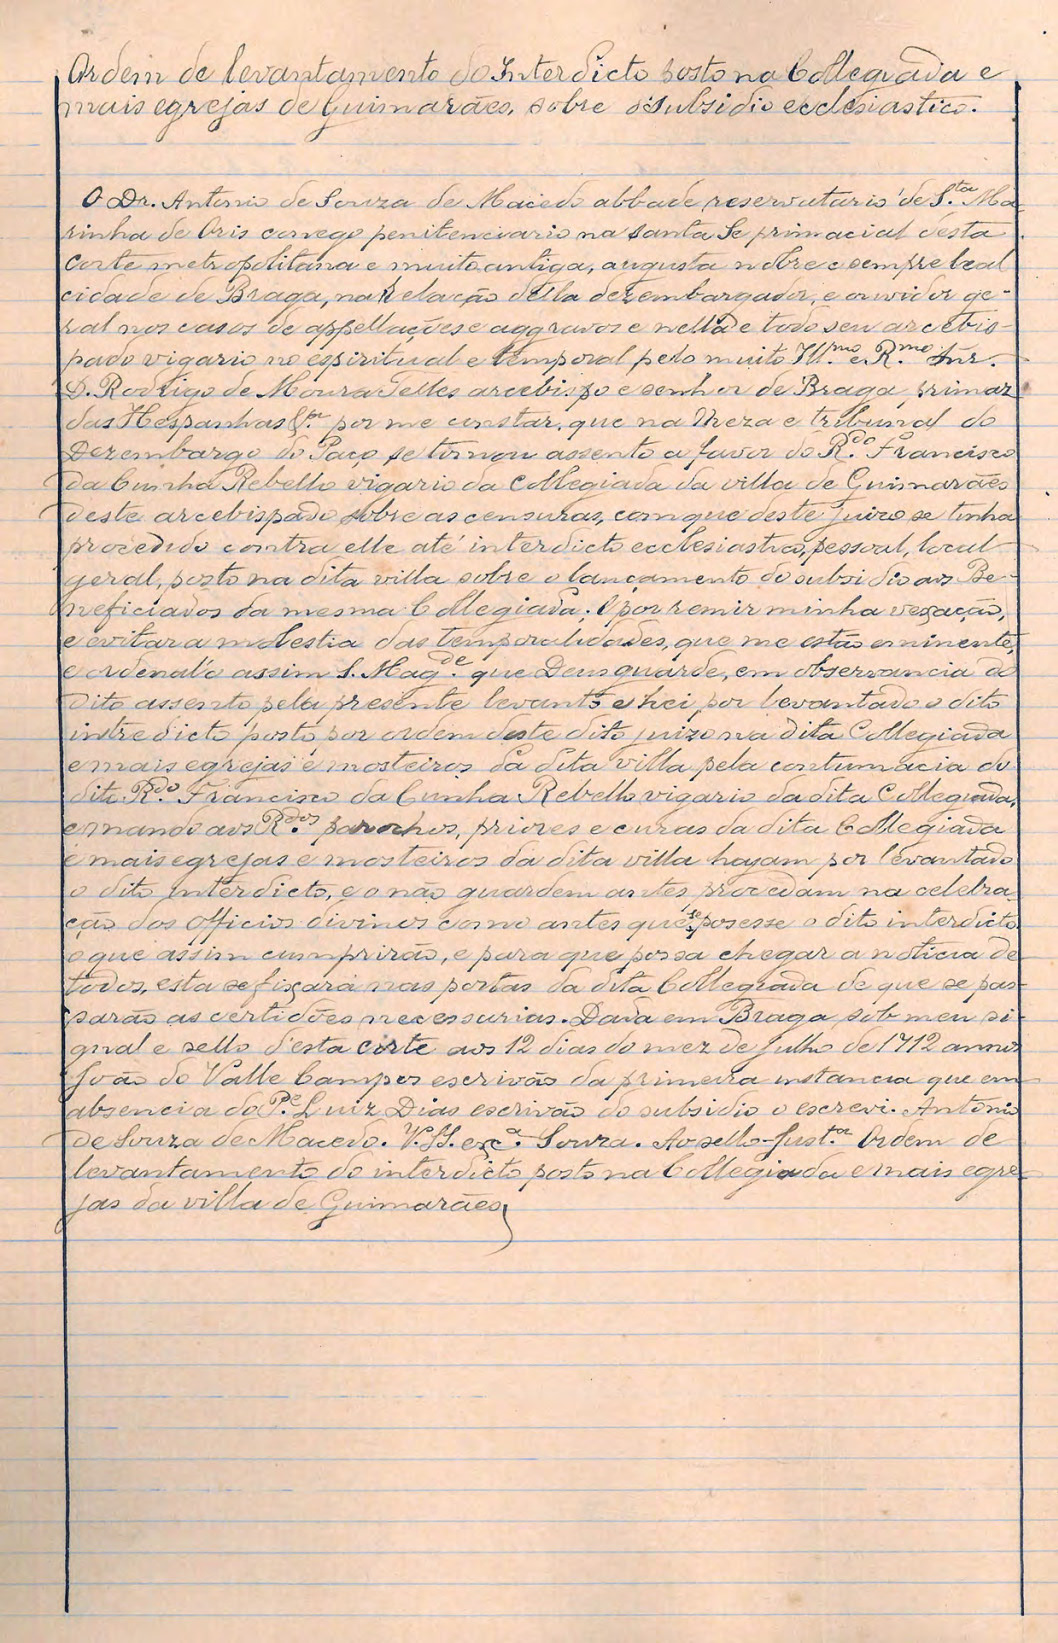 Ordem de levantamento do Interdicto posto na Collegiada e
mais egrejas de Guimarães, sobre o subsidio ecclesiastico.
O Dr. Antonio de Souza de Macedo abbade reservatario de S.ta Ma
rinha de Oris conego penitenciario na santa Se primacial desta
Corte metropolitana e muito antiga, augusta nobre e sempre leal
cidade de Braga, na Relação della dezembargador, e ouvidor ge-
ral nos casos de appellações e aggravos e nella e todo seu arcebis-
pado vigario no espiritual e temporal pelo muito Ill.mo e R.mo Snr.
D. Rodrigo de Moura Telles arcebispo e senhor de Braga, primaz
das Hespanhas &.ª por me constar, que na Meza e tribunal do
Dezembargo do Paço se tomou assento a favor do R.do Francisco
da Cunha Rebello vigario da Collegiada da villa de Guimarães
deste arcebispado sobre as censuras, com que deste juizo se tinha
procedido contra elle até interdicto ecclesiastico, pessoal, local
geral, posto na dita villa sobre o lançamento do subsidio aos Be-
neficiados da mesma Collegiada; E por remir minha vexação,
e evitar a molestia das temporalidades, que me estão eminentes,
e ordenal'o assim S. Mag.de que Deus guarde, em observancia do
dito assento pela presente levanto e hei por levantado o dito
intredicto posto por ordem deste dito juizo na dita Collegiada
e mais egrejas e mosteiros da dita villa pela contumacia do
dito R.do Francisco da Cunha Rebello vigario da dita Collegiada,
e mando aos R.dos parochos, priores e curas da dita Collegiada
e mais egrejas e mosteiros da dita villa hajam por levantado
o dito interdicto, e o não guardem antes procedam na celebra
ção dos Officios divinos como antes que se posesse o dito interdicto
o que assim cumprirão, e para que possa chegar a noticia de
todos, esta se fixará nas portas da dita Collegiada de que se pas-
sarão as certidões necessarias. Dada em Braga sob meu si-
gnal e sello d'esta corte aos 12 dias do mez de Julho de 1712 annos
João do Valle Campos escrivão da primeira instancia que em
absencia do P.e Luiz Dias escrivão do subsidio o escrevi. Antonio
de Souza de Macedo. V. S. exc.ª Souza. Ao sello-Just.ª Ordem de
levantamento do interdicto posto na Collegiada e mais egre-
jas da villa de Guimarães,